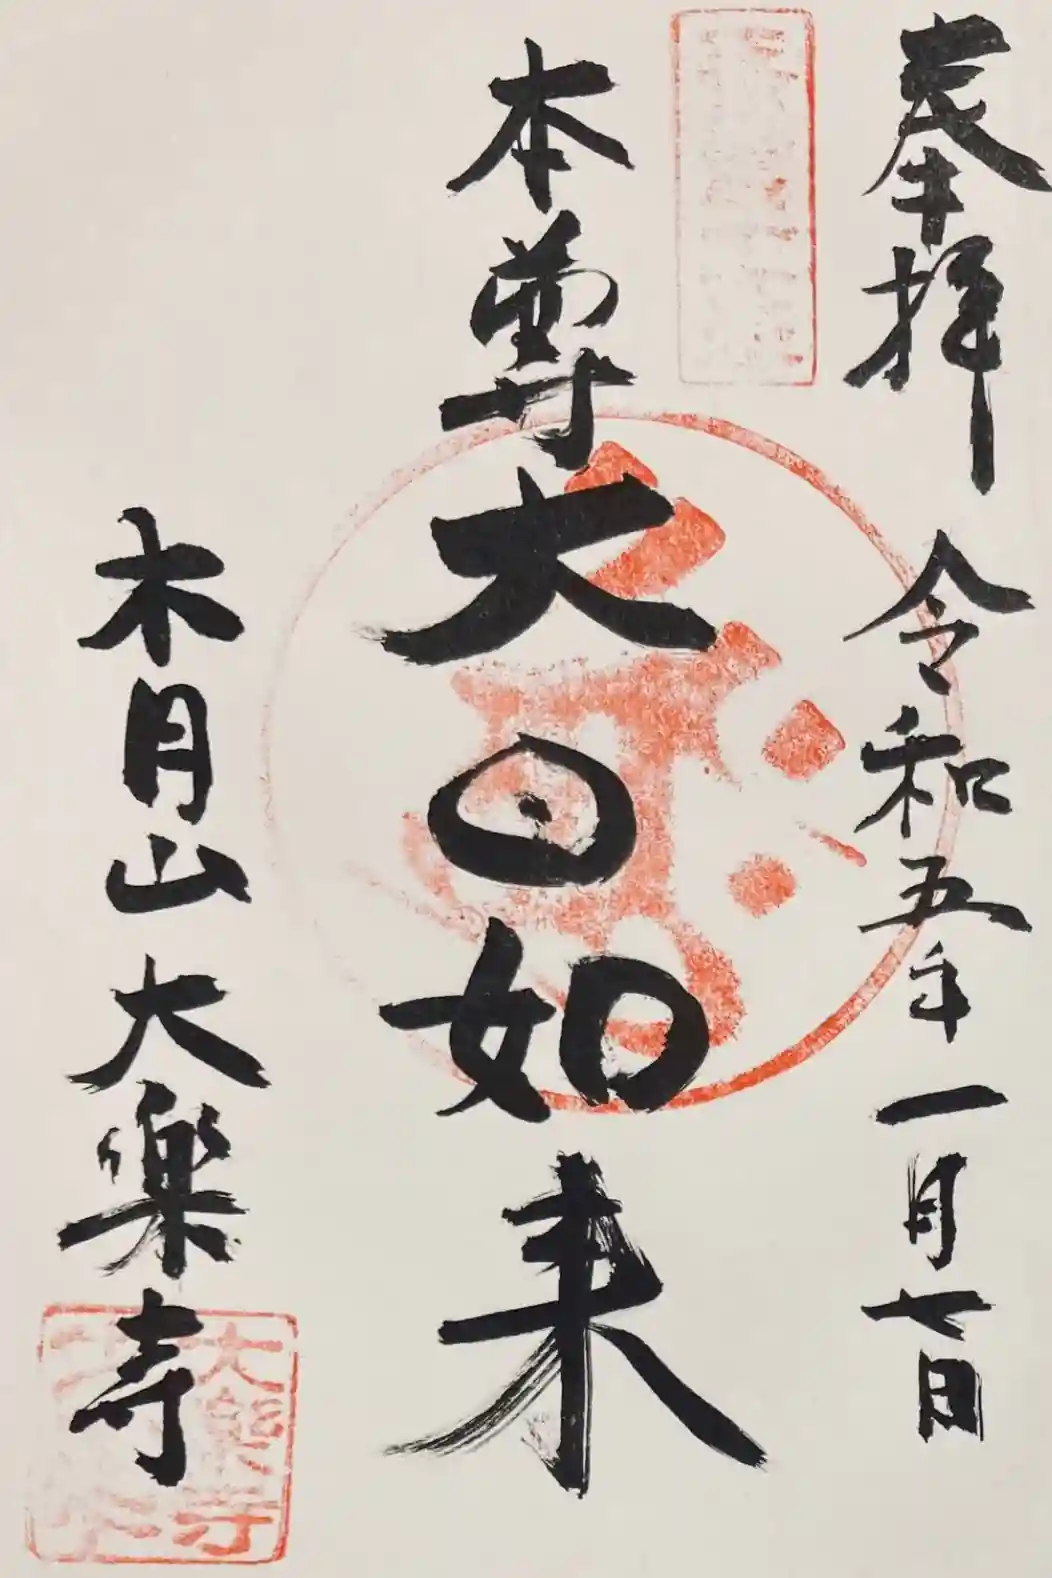 奉拝 令和五年一月七日
本尊大日如来
木月山 大楽寺